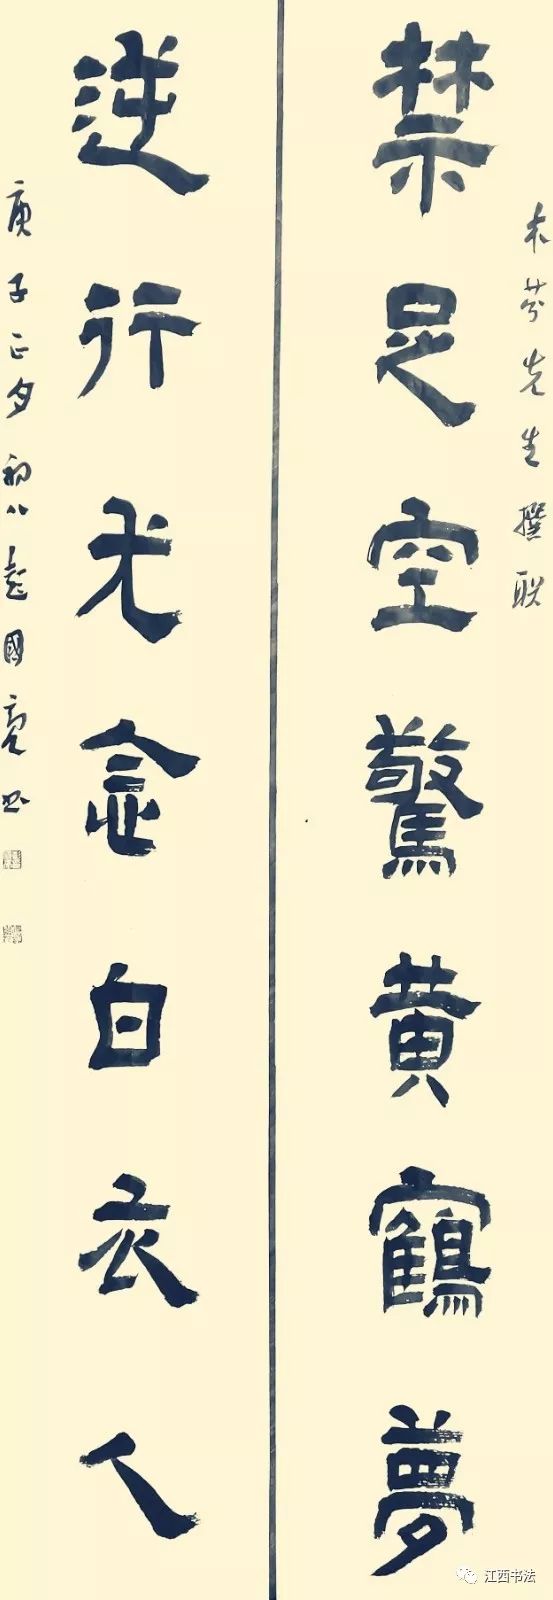 禁足空驚黄鶴夢
逆行尤念白衣人
木芬先生撰联
庚子正夕初八彭國亮书
江西书法